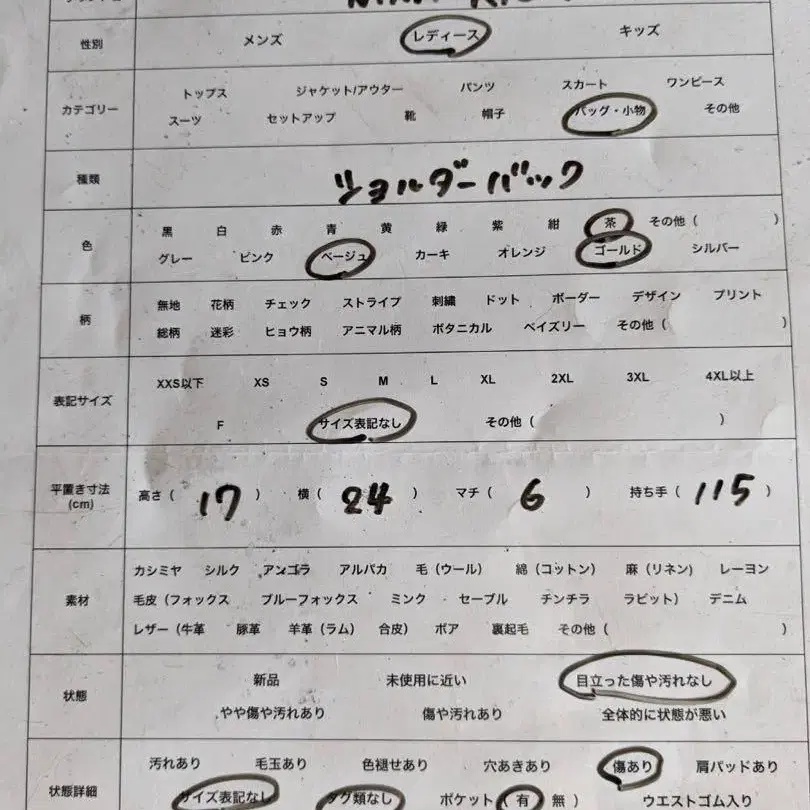 性別 メンズ レディース キッズ
カテゴリー
トップス ジャケット/アウター パンツ スカート ワンピース
スーツ セットアップ 靴 帽子 バッグ・小物 その他
種類 ショルダーバック
色
黒 白 赤 青 黄 緑 紫 紺 茶 その他 ( )
グレー ピンク ベージュ カーキ オレンジ ゴールド シルバー
柄
無地 花柄 チェック ストライプ 刺繍 ドット ボーダー デザイン プリント
総柄 迷彩 ヒョウ柄 アニマル柄 ボタニカル ペイズリー その他 ( )
表記サイズ
XXS以下 XS S M L XL 2XL 3XL 4XL以上
F サイズ表記なし その他 ( )
平置き寸法
(cm)
高さ ( 17 ) 横 ( 24 ) マチ ( 6 ) 持ち手 ( 115 )
素材
カシミヤ シルク アンゴラ アルパカ 毛 (ウール) 綿 (コットン) 麻 (リネン) レーヨン
毛皮 (フォックス ブルーフォックス ミンク セーブル チンチラ ラビット) デニム
レザー (牛革 豚革 羊革 (ラム) 合皮) ボア 裏起毛 その他 ( )
状態
新品 未使用に近い 目立った傷や汚れなし
やや傷や汚れあり 傷や汚れあり 全体的に状態が悪い
状態詳細
汚れあり 毛玉あり 色褪せあり 穴あきあり 傷あり 肩パッドあり
サイズ表記なし タグ類なし ポケット ( 有 無 ) ウエストゴム入り